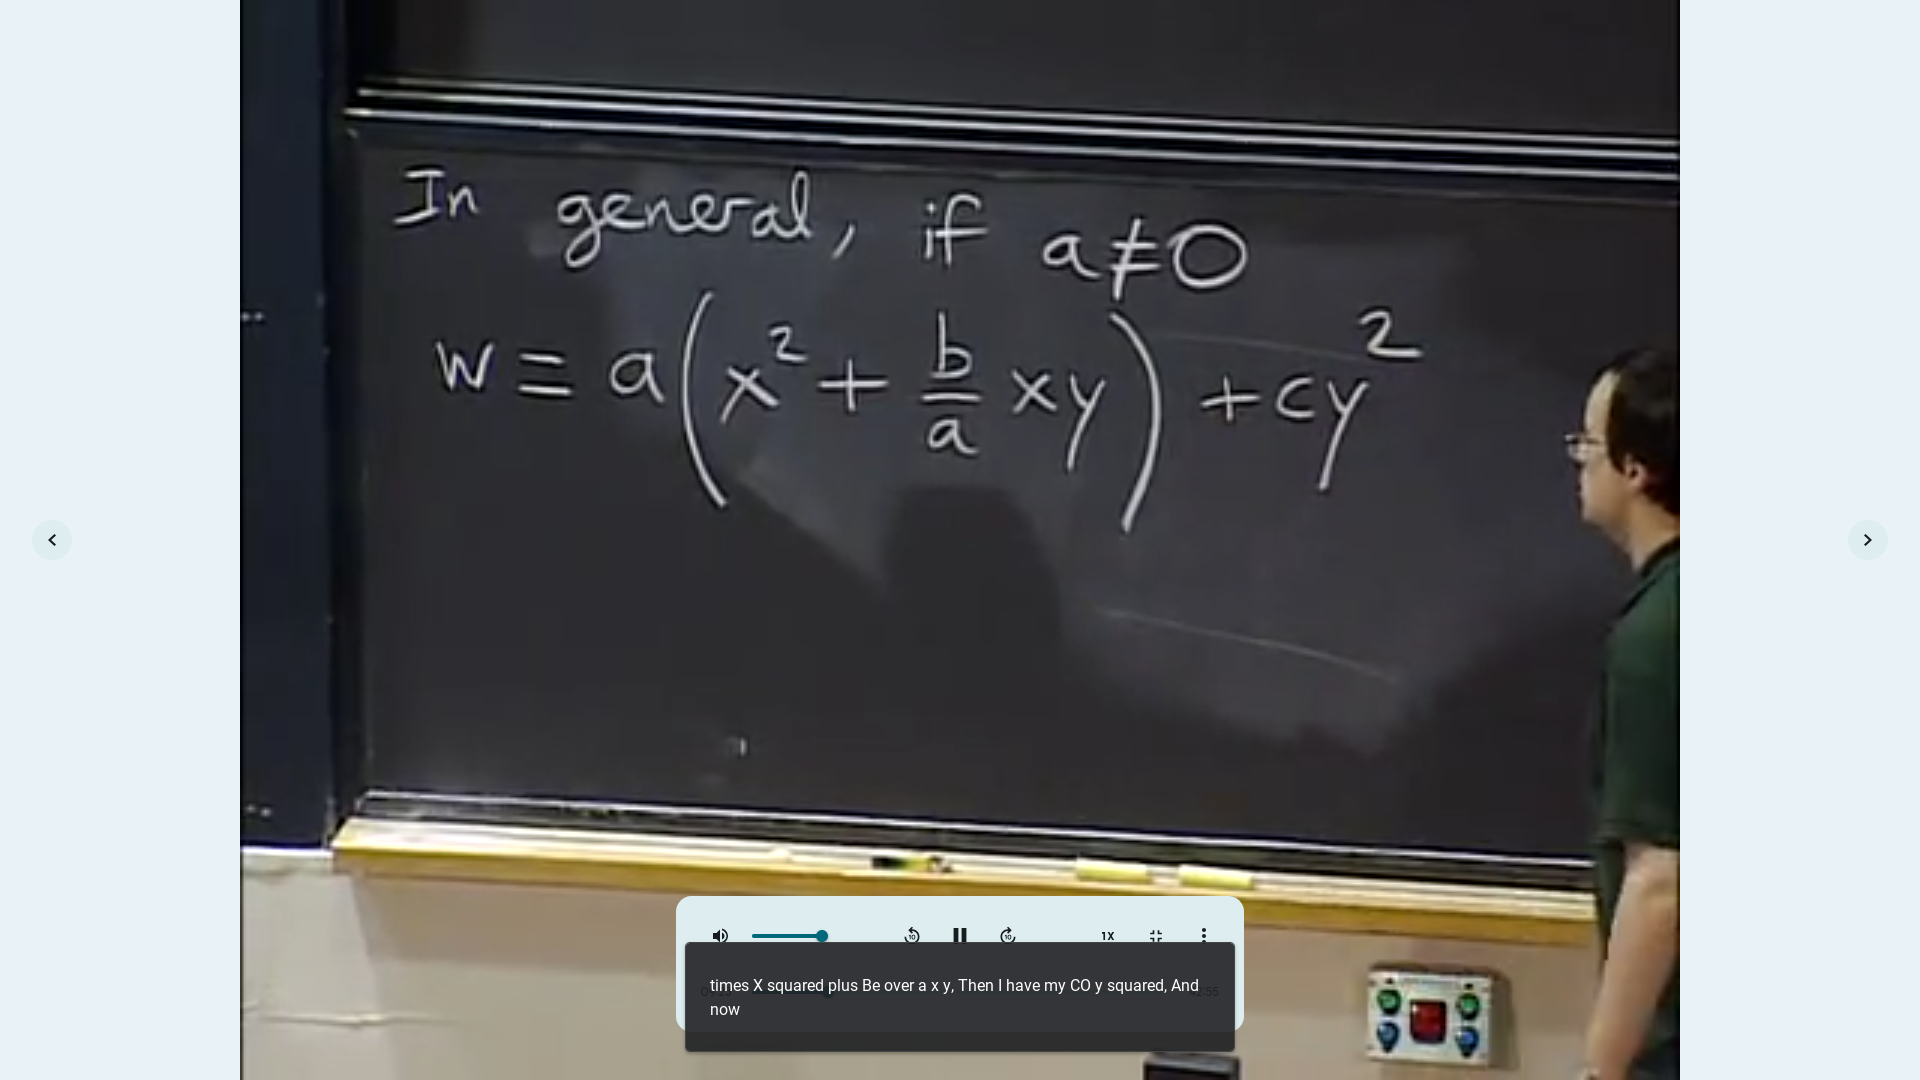 In general, if a≠0
w = a(x² + b/a xy) + cy²
1X
times X squared plus Be over a x y, Then I have my CO y squared, And
now